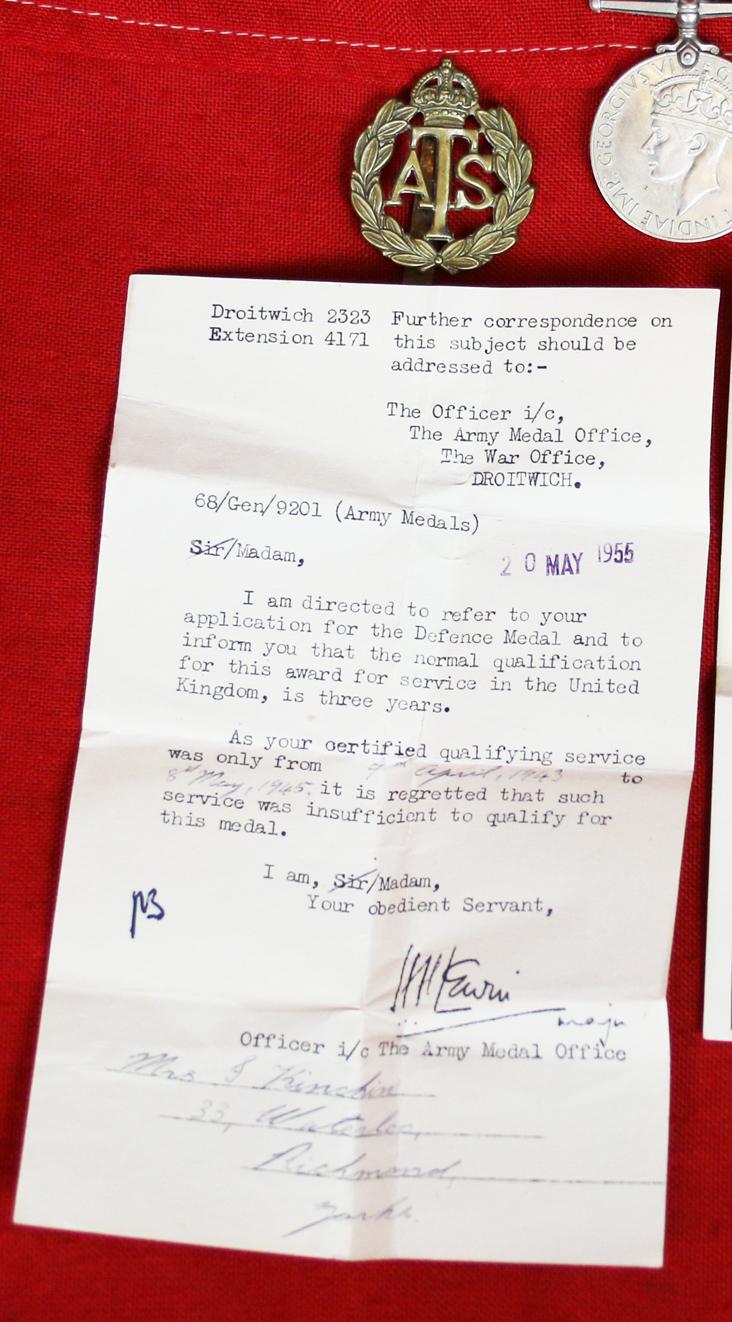 GEORGIVS VI
INDIAE IMP:
ATS
Droitwich 2323
Extension 4171
Further correspondence on
this subject should be
addressed to:-
The Officer i/c,
The Army Medal Office,
The War Office,
DROITWICH.
68/Gen/9201 (Army Medals)
Sir/Madam,
20 MAY 1955
I am directed to refer to your
application for the Defence Medal and to
inform you that the normal qualification
for this award for service in the United
Kingdom, is three years.
As your certified qualifying service
was only from 9th April, 1943 to
8th May, 1945, it is regretted that such
service was insufficient to qualify for
this medal.
I am, Sir/Madam,
Your obedient Servant,
major
Officer i/c The Army Medal Office
Mrs I Kinchin
33, Waterloo,
Richmond,
Yorks.